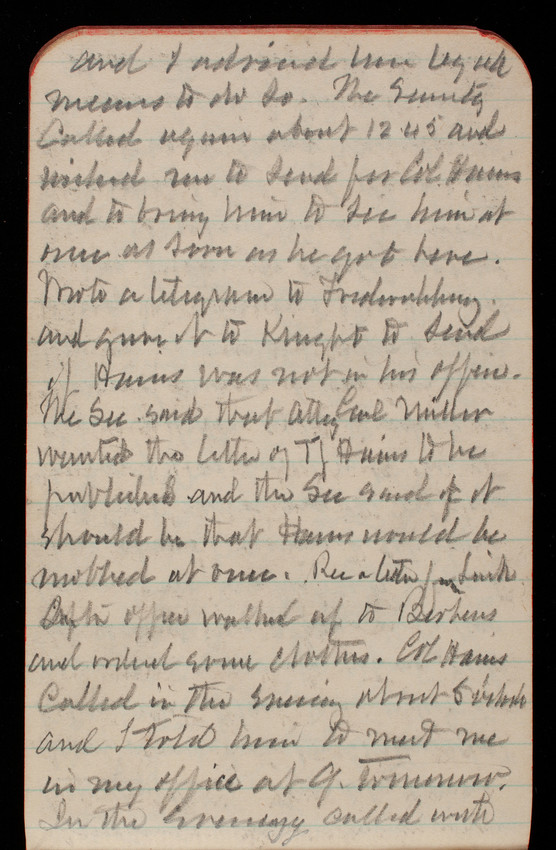 and I advised him by all
means to do so. The Secrety
called again about 12 45 and
wished me to send for Col Hains
and to bring him to see him at
once as soon as he got here.
Wrote a telegram to Fredericksburg.
and gave it to Knight to send
if Hains was not in his office.
The Sec. said that Atty Genl Miller
wanted the letter of T J Hains to be
published and the Sec said if it
should be that Hains would be
mobbed at once. Rec a letter from
After office walked up to
and ordered some clothes. Col Hains
called in the evening about 5 o'clock
and I told him to meet me
in my office at 9. tomorrow.
In the evening called with